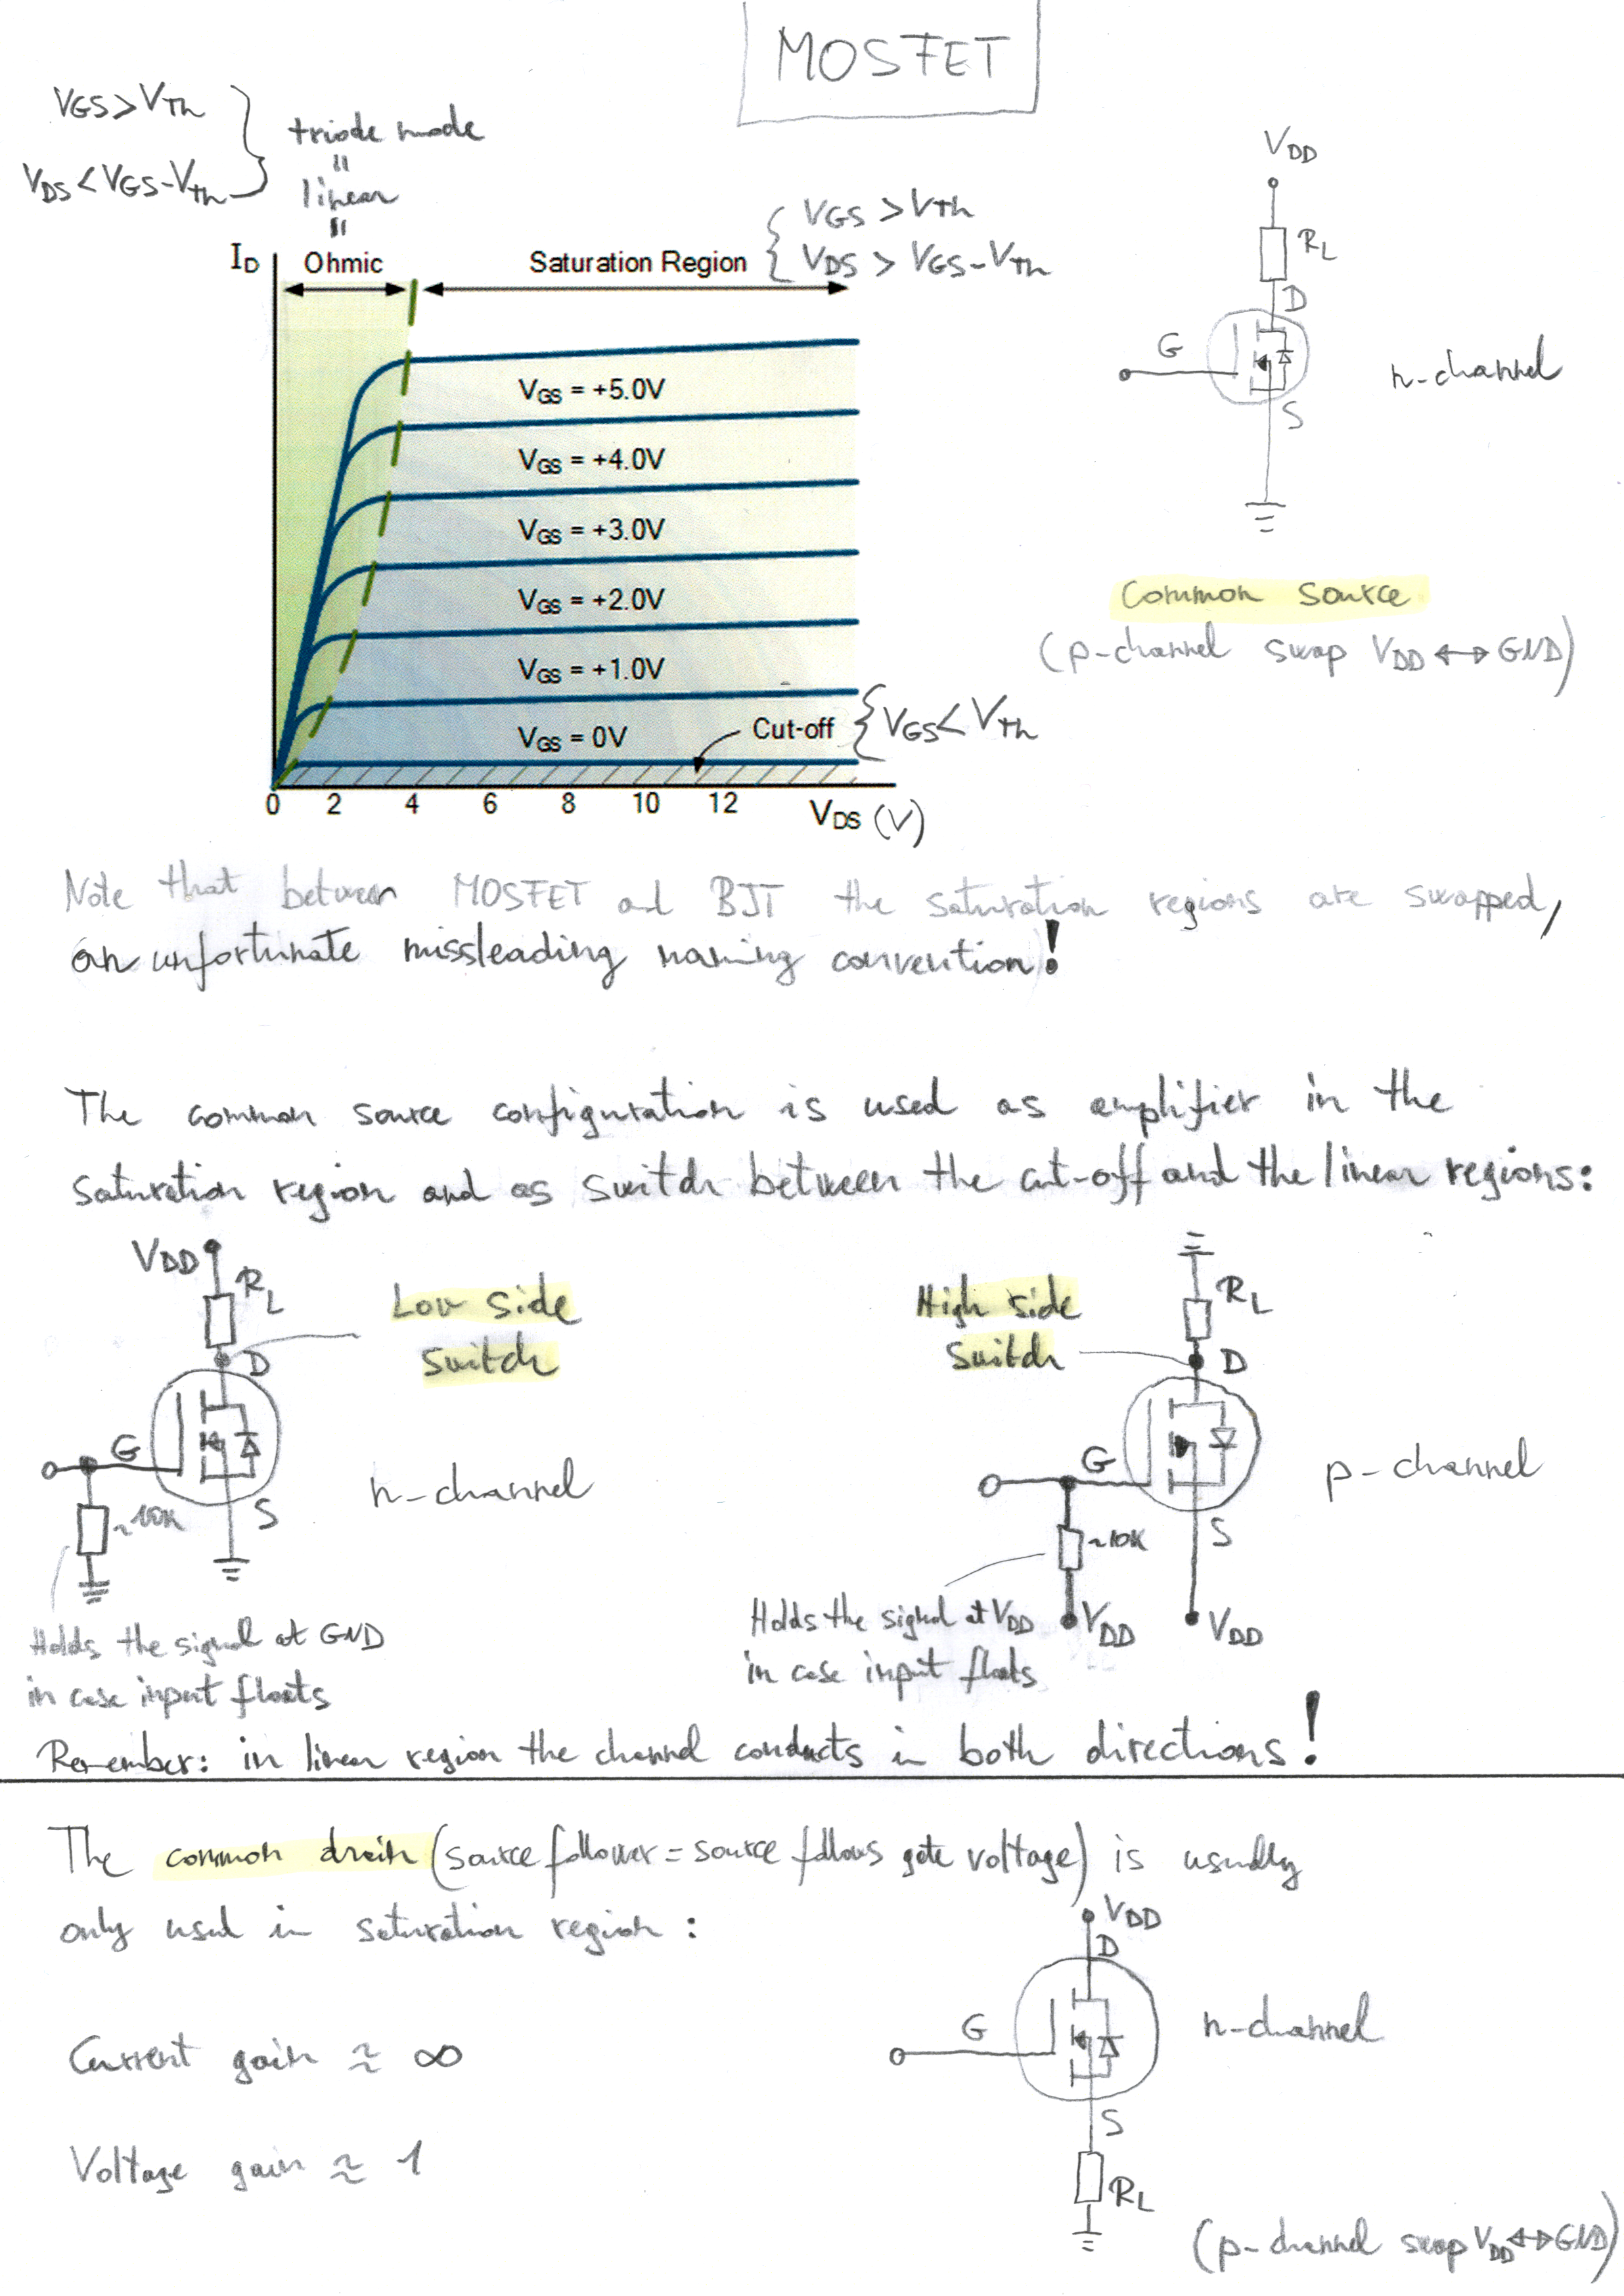 MOSFET
VGS > VTh
VDS < VGS - VTh
triode mode
=
linear
=
Ohmic
ID
Saturation Region
VGS > VTh
VDS > VGS - VTh
VGS = +5.0V
VGS = +4.0V
VGS = +3.0V
VGS = +2.0V
VGS = +1.0V
VGS = 0V
Cut-off
VGS < VTh
0 2 4 6 8 10 12
VDS (V)
VDD
RL
D
G
S
n-channel
Common Source
(p-channel swap VDD ↔ GND)
Note that between MOSFET and BJT the saturation regions are swapped,
an unfortunate missleading naming convention!
The common source configuration is used as amplifier in the
saturation region and as switch between the cut-off and the linear regions:
VDD
RL
D
Low side
switch
G
S
n-channel
~10K
Holds the signal at GND
in case input floats
High side
switch
RL
D
G
S
p-channel
~10K
VDD
VDD
Holds the signal at VDD
in case input floats
Remember: in linear region the channel conducts in both directions!
The common drain (source follower = source follows gate voltage) is usually
only used in saturation region:
Current gain ≈ ∞
Voltage gain ≈ 1
VDD
D
G
S
n-channel
RL
(p-channel swap VDD ↔ GND)